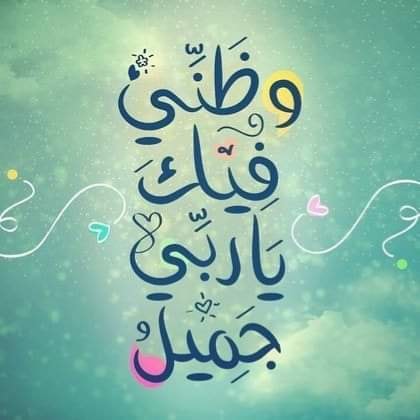 وَظَنِّي
فِيْكَ
يَارَبِّي
جَمِيْلُ